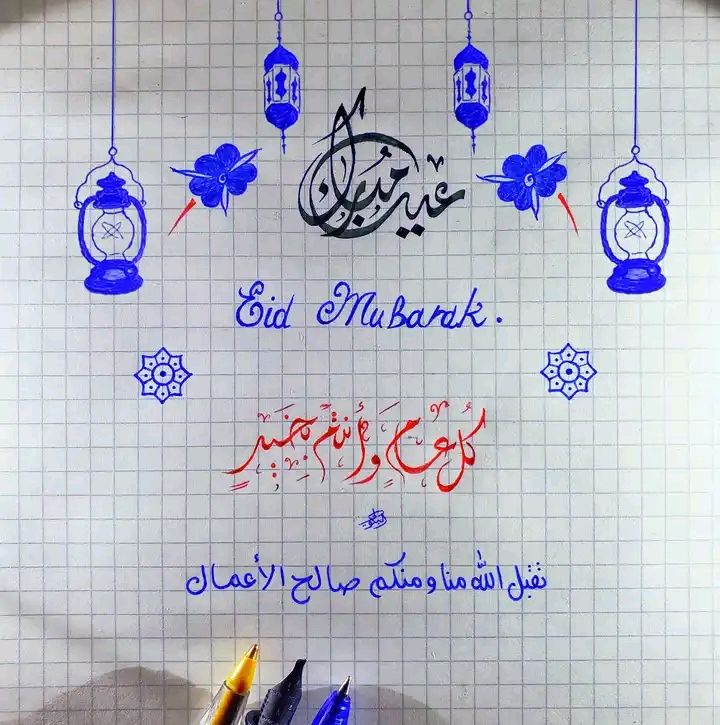 عيد مُبارك
Eid Mubarak.
كُل عَام وَأَنتُم بِخَيرٍ
تقبل الله منا ومنكم صالح الأعمال